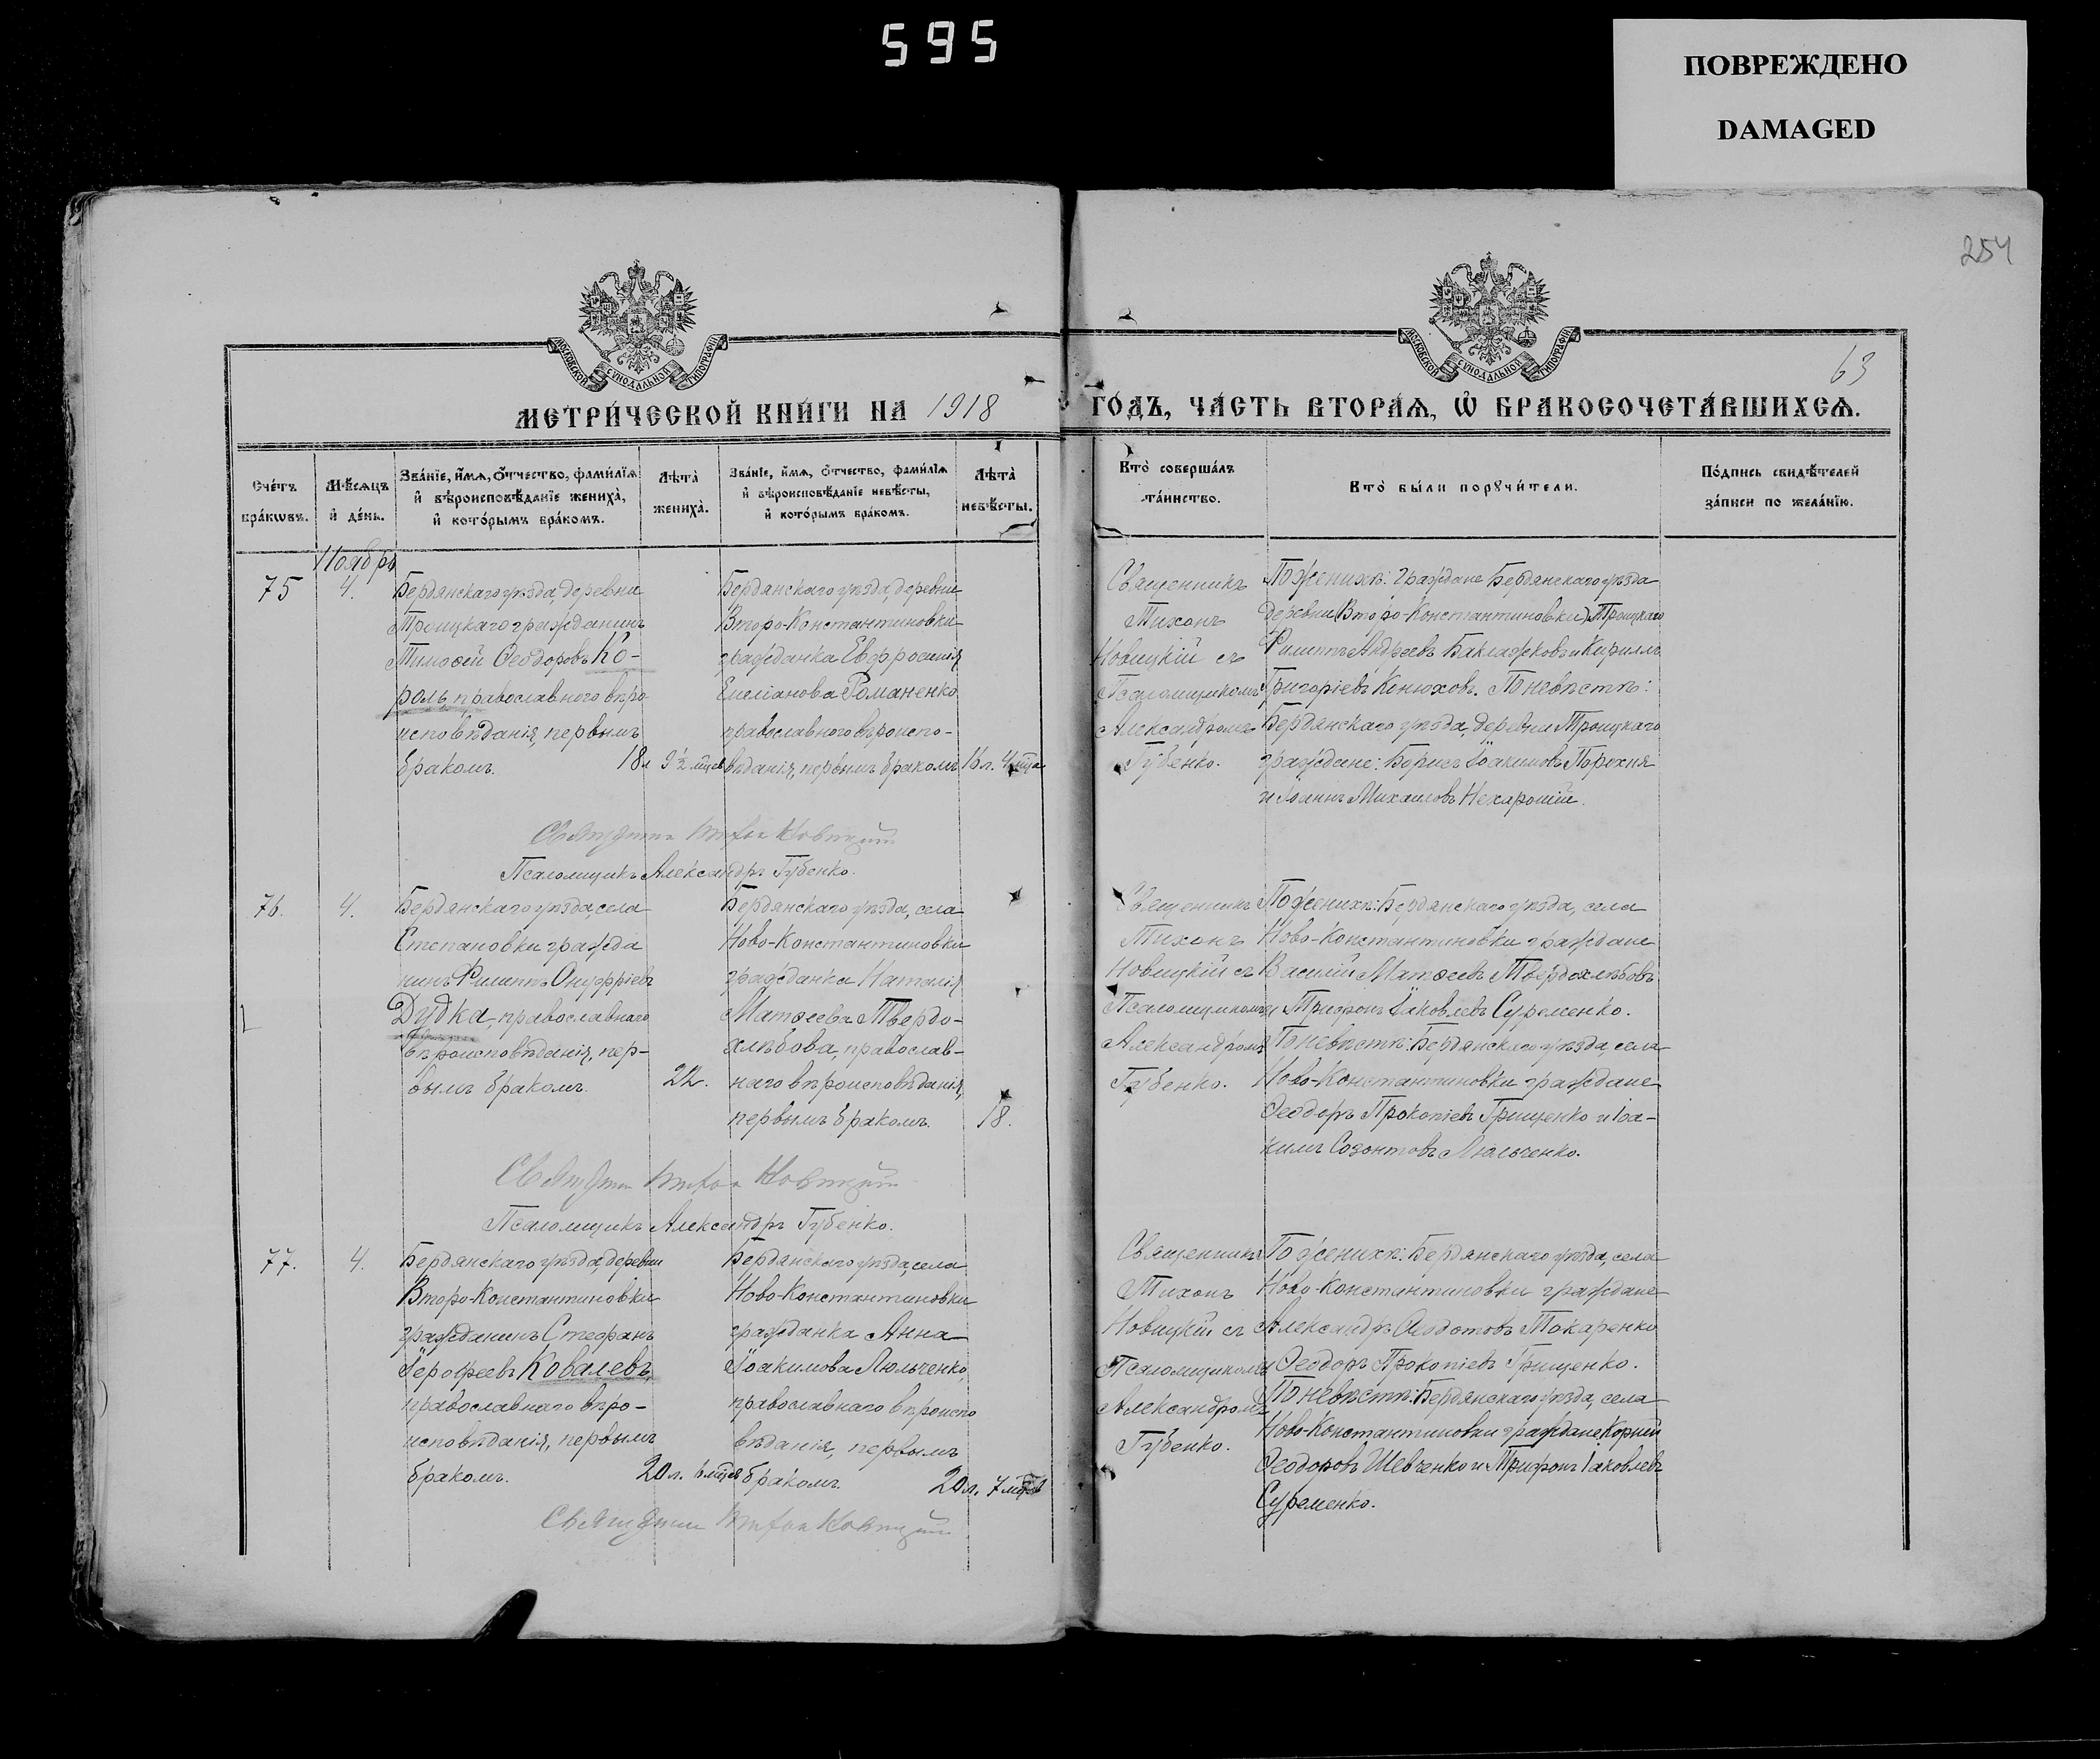 595
ПОВРЕЖДЕНО
DAMAGED
254
63
МОСКОВСКОЙ СѴНОДАЛЬНОЙ ТИПОГРАФІИ
МОСКОВСКОЙ СѴНОДАЛЬНОЙ ТИПОГРАФІИ
МЕТРИ́ЧЕСКОЙ КНИ́ГИ НА 1918
ГО́ДЪ, ЧА́СТЬ ВТОРА́Ѧ, Ѿ БРАКОСОЧЕТА́ВШИХСѦ.
Сче́тъ
бра́кѡвъ.
Мѣ́сѧцъ
и҆ де́нь.
Зва́нїе, и҆́мѧ, ѻ҆́тчество, фами́лїѧ
и҆ вѣроисповѣ́данїе жениха̀,
и҆ кото́рымъ бра́комъ.
Лѣ́та̀
жениха̀.
Зва́нїе, и҆́мѧ, ѻ҆́тчество, фами́лїѧ
и҆ вѣроисповѣ́данїе невѣ́сты,
и҆ кото́рымъ бра́комъ.
Лѣ́та̀
невѣ́сты.
Кто̀ соверша́лъ
та́инство.
Кто̀ бы́ли порꙋчи́тели.
По́дпись свидѣ́телей
за́писи по жела́нїю.
Ноябрь
75
4.
Бердянскаго уѣзда, деревни
Троицкаго гражданинъ
Тимоѳей Ѳеодоровъ Ко-
роль, православнаго вѣро
исповѣданія, первымъ
бракомъ.
18 л 9½ мцев
Бердянскаго уѣзда, деревни
Второ-Константиновки
гражданка Евфросинія
Емеліанова Романенко,
православнаго вѣроиспо-
вѣданія, первымъ бракомъ
16 л. 4 мца
Священникъ
Тихонъ
Новицкій съ
Псаломщикомъ
Александромъ
Губенко.
По женихѣ: граждане Бердянскаго уѣзда
деревни (Второ-Константиновки) Троицкаго
Филиппъ Андреевъ Баклажковъ и Кириллъ
Григоріевъ Конюховъ. По невѣстѣ:
Бердянскаго уѣзда, деревни Троицкаго
граждане: Борисъ Іоакимовъ Порохня
и Іоаннъ Михаиловъ Нехарошій.
Священник Тихон Новицкий
Псаломщикъ Александръ Губенко.
76.
4.
Бердянскаго уѣзда, села
Степановки гражда
нинъ Филиппъ Онуфріевъ
Дудка, православнаго
вѣроисповѣданія, пер-
вымъ бракомъ.
22.
Бердянскаго уѣзда, села
Ново-Константиновки
гражданка Наталія
Матѳеева Твердо-
хлѣбова, православ-
наго вѣроисповѣданія,
первымъ бракомъ.
18.
Священникъ
Тихонъ
Новицкій съ
Псаломщикомъ
Александромъ
Губенко.
По женихѣ: Бердянскаго уѣзда, села
Ново-Константиновки граждане
Василій Матѳеевъ Твердохлѣбовъ
и Трифонъ Іаковлевъ Суременко.
По невѣстѣ: Бердянскаго уѣзда, села
Ново-Константиновки граждане
Ѳеодоръ Прокопіевъ Грищенко и Іоа-
кимъ Созонтовъ Люльченко.
Священник Тихон Новицкий
Псаломщикъ Александръ Губенко.
77.
4.
Бердянскаго уѣзда, деревни
Второ-Константиновки
гражданинъ Стефанъ
Іерофеевъ Ковалевъ,
православнаго вѣро-
исповѣданія, первымъ
бракомъ.
20 л. 6 мцев
Бердянскаго уѣзда, села
Ново-Константиновки
гражданка Анна
Іоакимова Люльченко,
православнаго вѣроиспо
вѣданія, первымъ
бракомъ.
20 л. 7 мцев
Священникъ
Тихонъ
Новицкій съ
Псаломщикомъ
Александромъ
Губенко.
По женихѣ: Бердянскаго уѣзда, села
Ново-Константиновки граждане
Александръ Ѳеодотовъ Токаренко
и Ѳеодоръ Прокопіевъ Грищенко.
По невѣстѣ: Бердянскаго уѣзда, села
Ново-Константиновки граждане, Корній
Ѳеодоровъ Шевченко и Трифонъ Іаковлевъ
Суременко.
Священник Тихон Новицкий